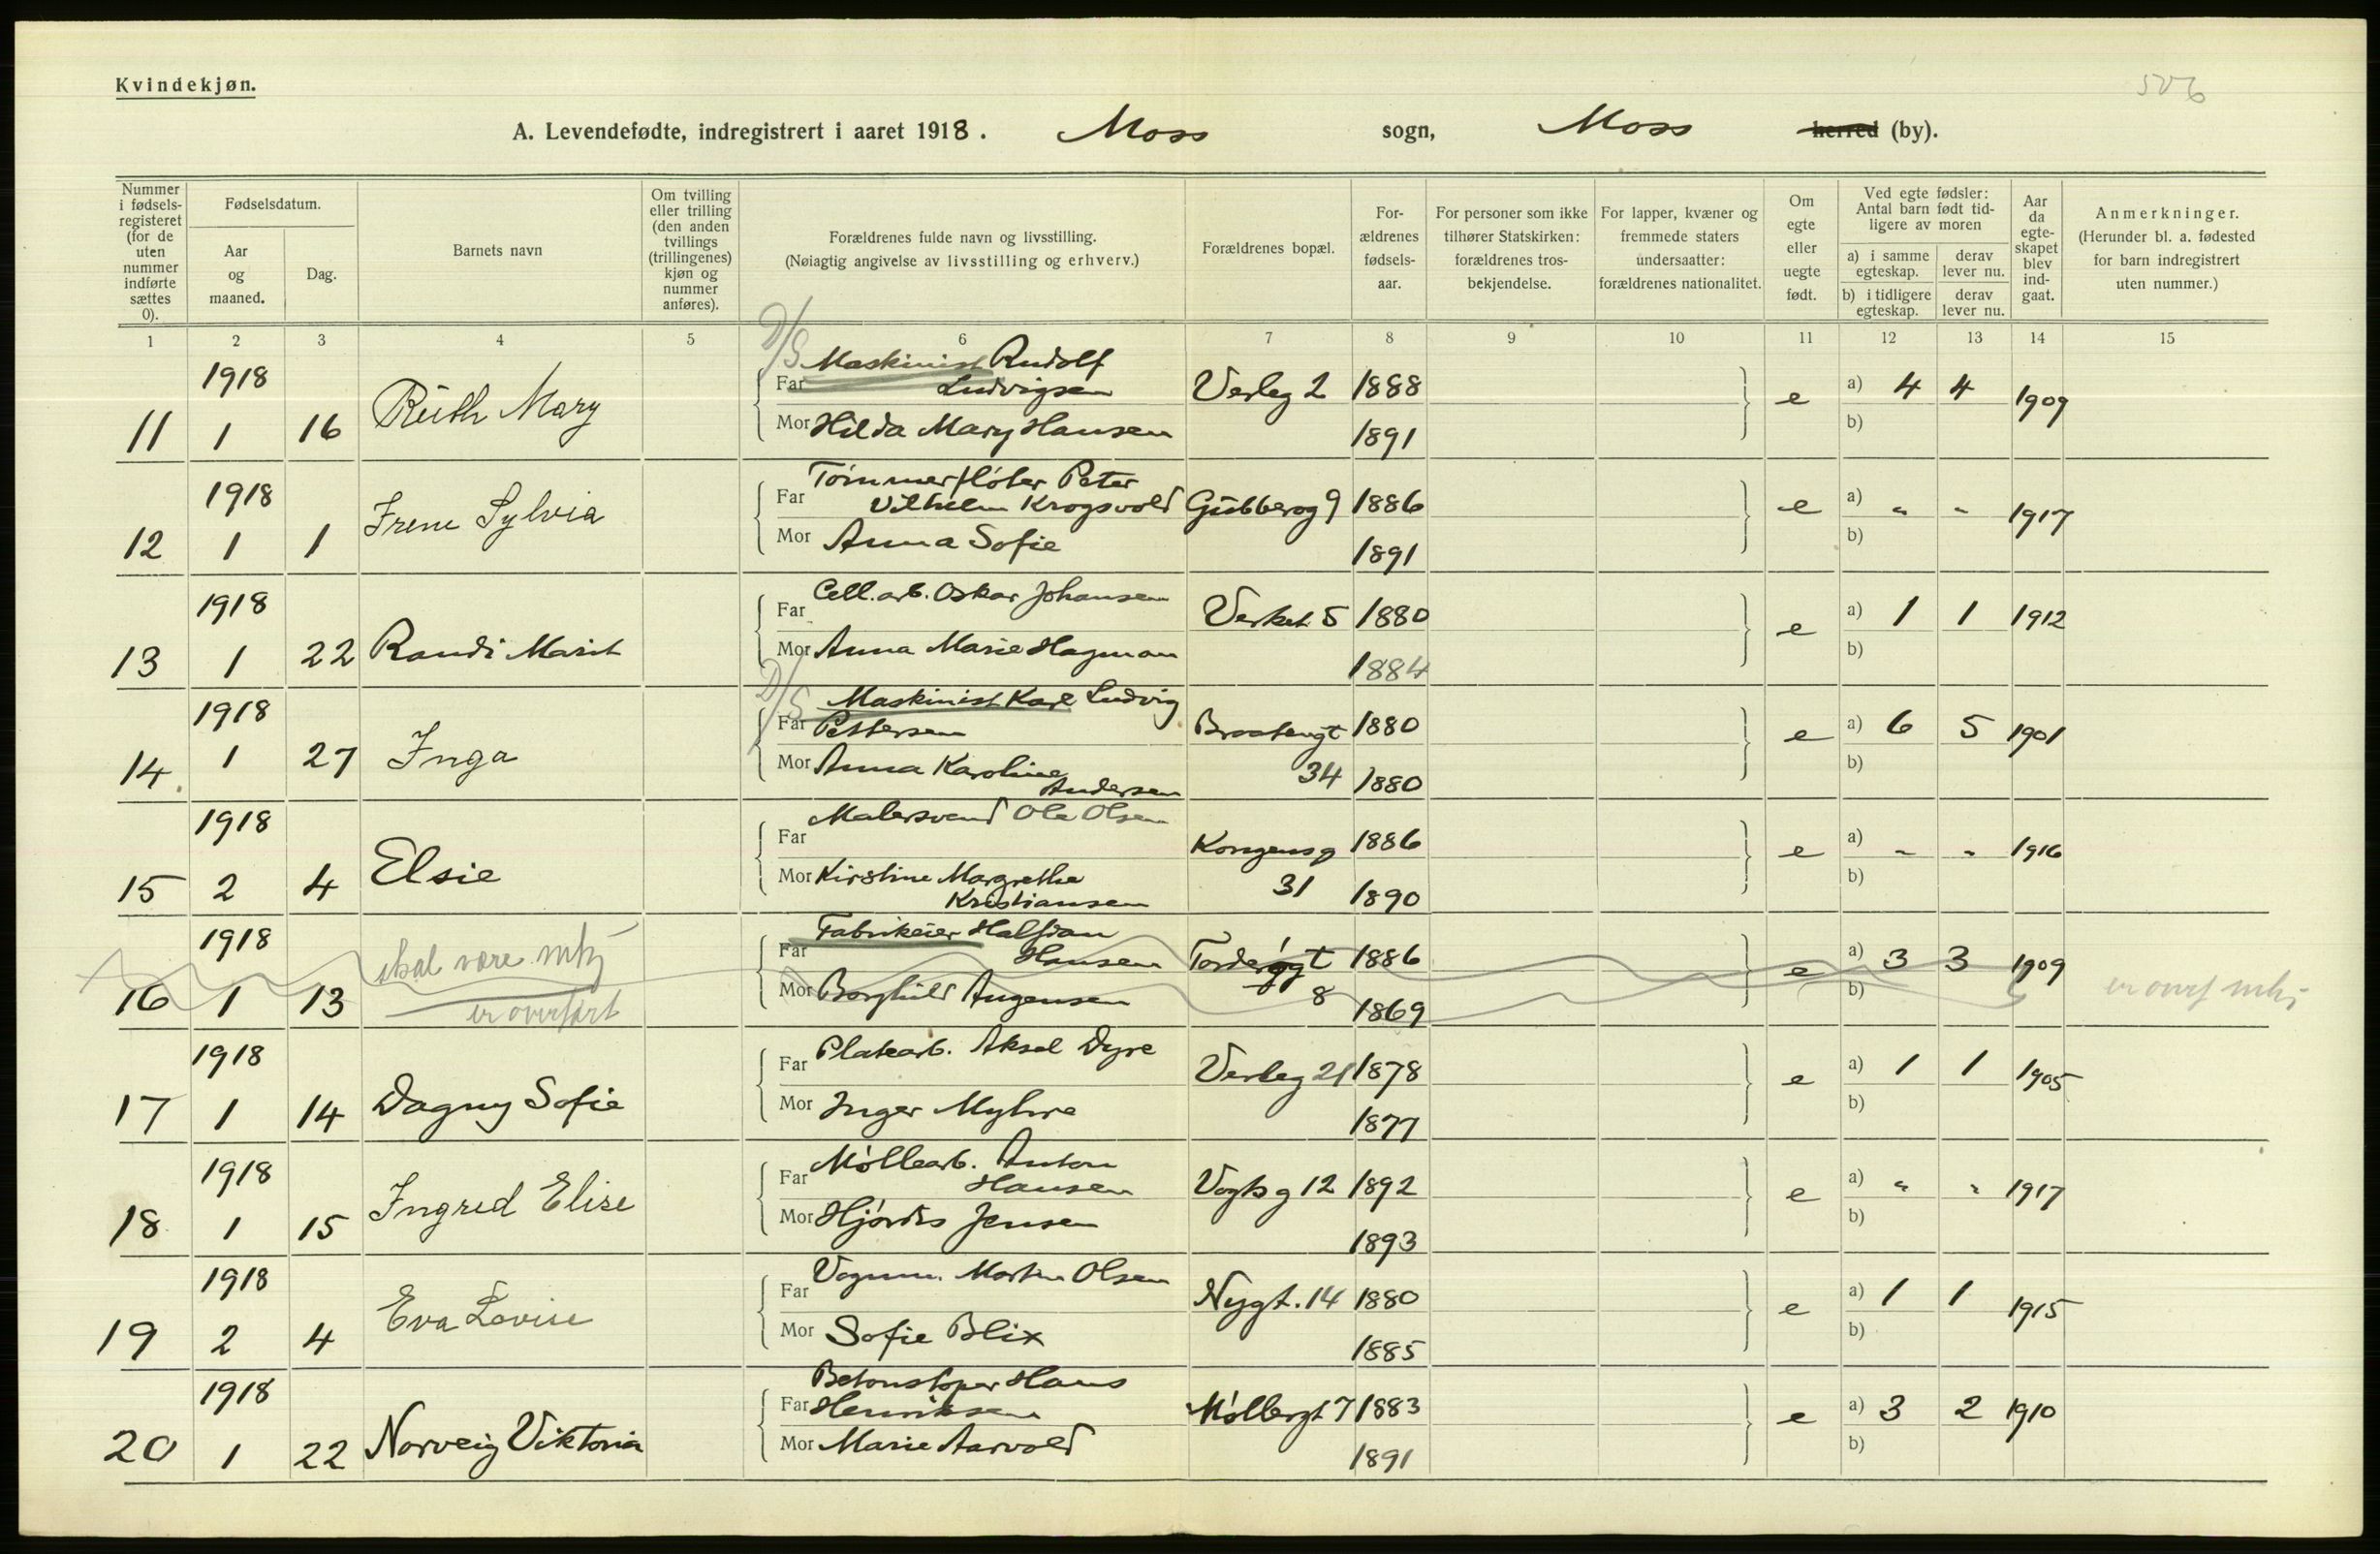 Kvindekjøn.
506
A. Levendefødte, indregistrert i aaret 1918. Moss sogn, Moss herred (by).
Nummer i fødselsregisteret (for de uten nummer indførte sættes 0).
Fødselsdatum.
Aar og maaned.
Dag.
Barnets navn
Om tvilling eller trilling (den anden tvillings (trillingenes) kjøn og nummer anføres).
Forældrenes fulde navn og livsstilling.
(Nøiagtig angivelse av livsstilling og erhverv.)
Forældrenes bopæl.
Forældrenes fødselsaar.
For personer som ikke tilhører Statskirken: forældrenes trosbekjendelse.
For lapper, kvæner og fremmede staters undersaatter: forældrenes nationalitet.
Om egte eller uegte født.
Ved egte fødsler: Antal barn født tidligere av moren
a) i samme egteskap.
derav lever nu.
b) i tidligere egteskap.
derav lever nu.
Aar da egteskapet blev indgaat.
Anmerkninger.
(Herunder bl. a. fødested for barn indregistrert uten nummer.)
1 2 3 4 5 6 7 8 9 10 11 12 13 14 15
11 1918 1 16 Ruth Mary
D/S Far Maskinist Rudolf Ludvigsen Verleg 2 1888 e a) 4 4 1909
Mor Hilda Mary Hansen 1891 b)
12 1918 1 1 Irene Sylvia
Far Tømmerfløter Peter Vilhelm Krogsvold Gubberog 9 1886 e a) " " 1917
Mor Anna Sofie 1891 b)
13 1918 1 22 Randi Marit
Far Cell.arb. Oskar Johansen Verket 5 1880 e a) 1 1 1912
Mor Anna Marie Hagman 1884 b)
14 1918 1 27 Inga
D/S Far Maskinist Karl Ludvig Pettersen Braatengt 34 1880 e a) 6 5 1901
Mor Anna Karoline Andersen 1880 b)
15 1918 2 4 Elsie
Far Malersvend Ole Olsen Kongensg 31 1886 e a) " " 1916
Mor Kirstine Margrethe Kristiansen 1890 b)
16 1918 1 13 skal være mkj er overført
Far Fabrikeier Halfdan Hansen 8 1886 e a) 3 3 1909 er overf mkj
Mor Borghild Augensen 1869 b)
17 1918 1 14 Dagny Sofie
Far Platearb. Aksel Dyre Verleg 21 1878 e a) 1 1 1905
Mor Inger Myhre 1877 b)
18 1918 1 15 Ingred Elise
Far Møllearb. Anton Hansen Vogtsg 12 1892 e a) " " 1917
Mor Hjørdis Jensen 1893 b)
19 1918 2 4 Eva Lovise
Far Vognm. Martin Olsen Nygt. 14 1880 e a) 1 1 1915
Mor Sofie Blix 1885 b)
20 1918 1 22 Norveig Viktoria
Far Betonstøper Hans Henriksen Møllergt 7 1883 e a) 3 2 1910
Mor Marie Aarvold 1891 b)